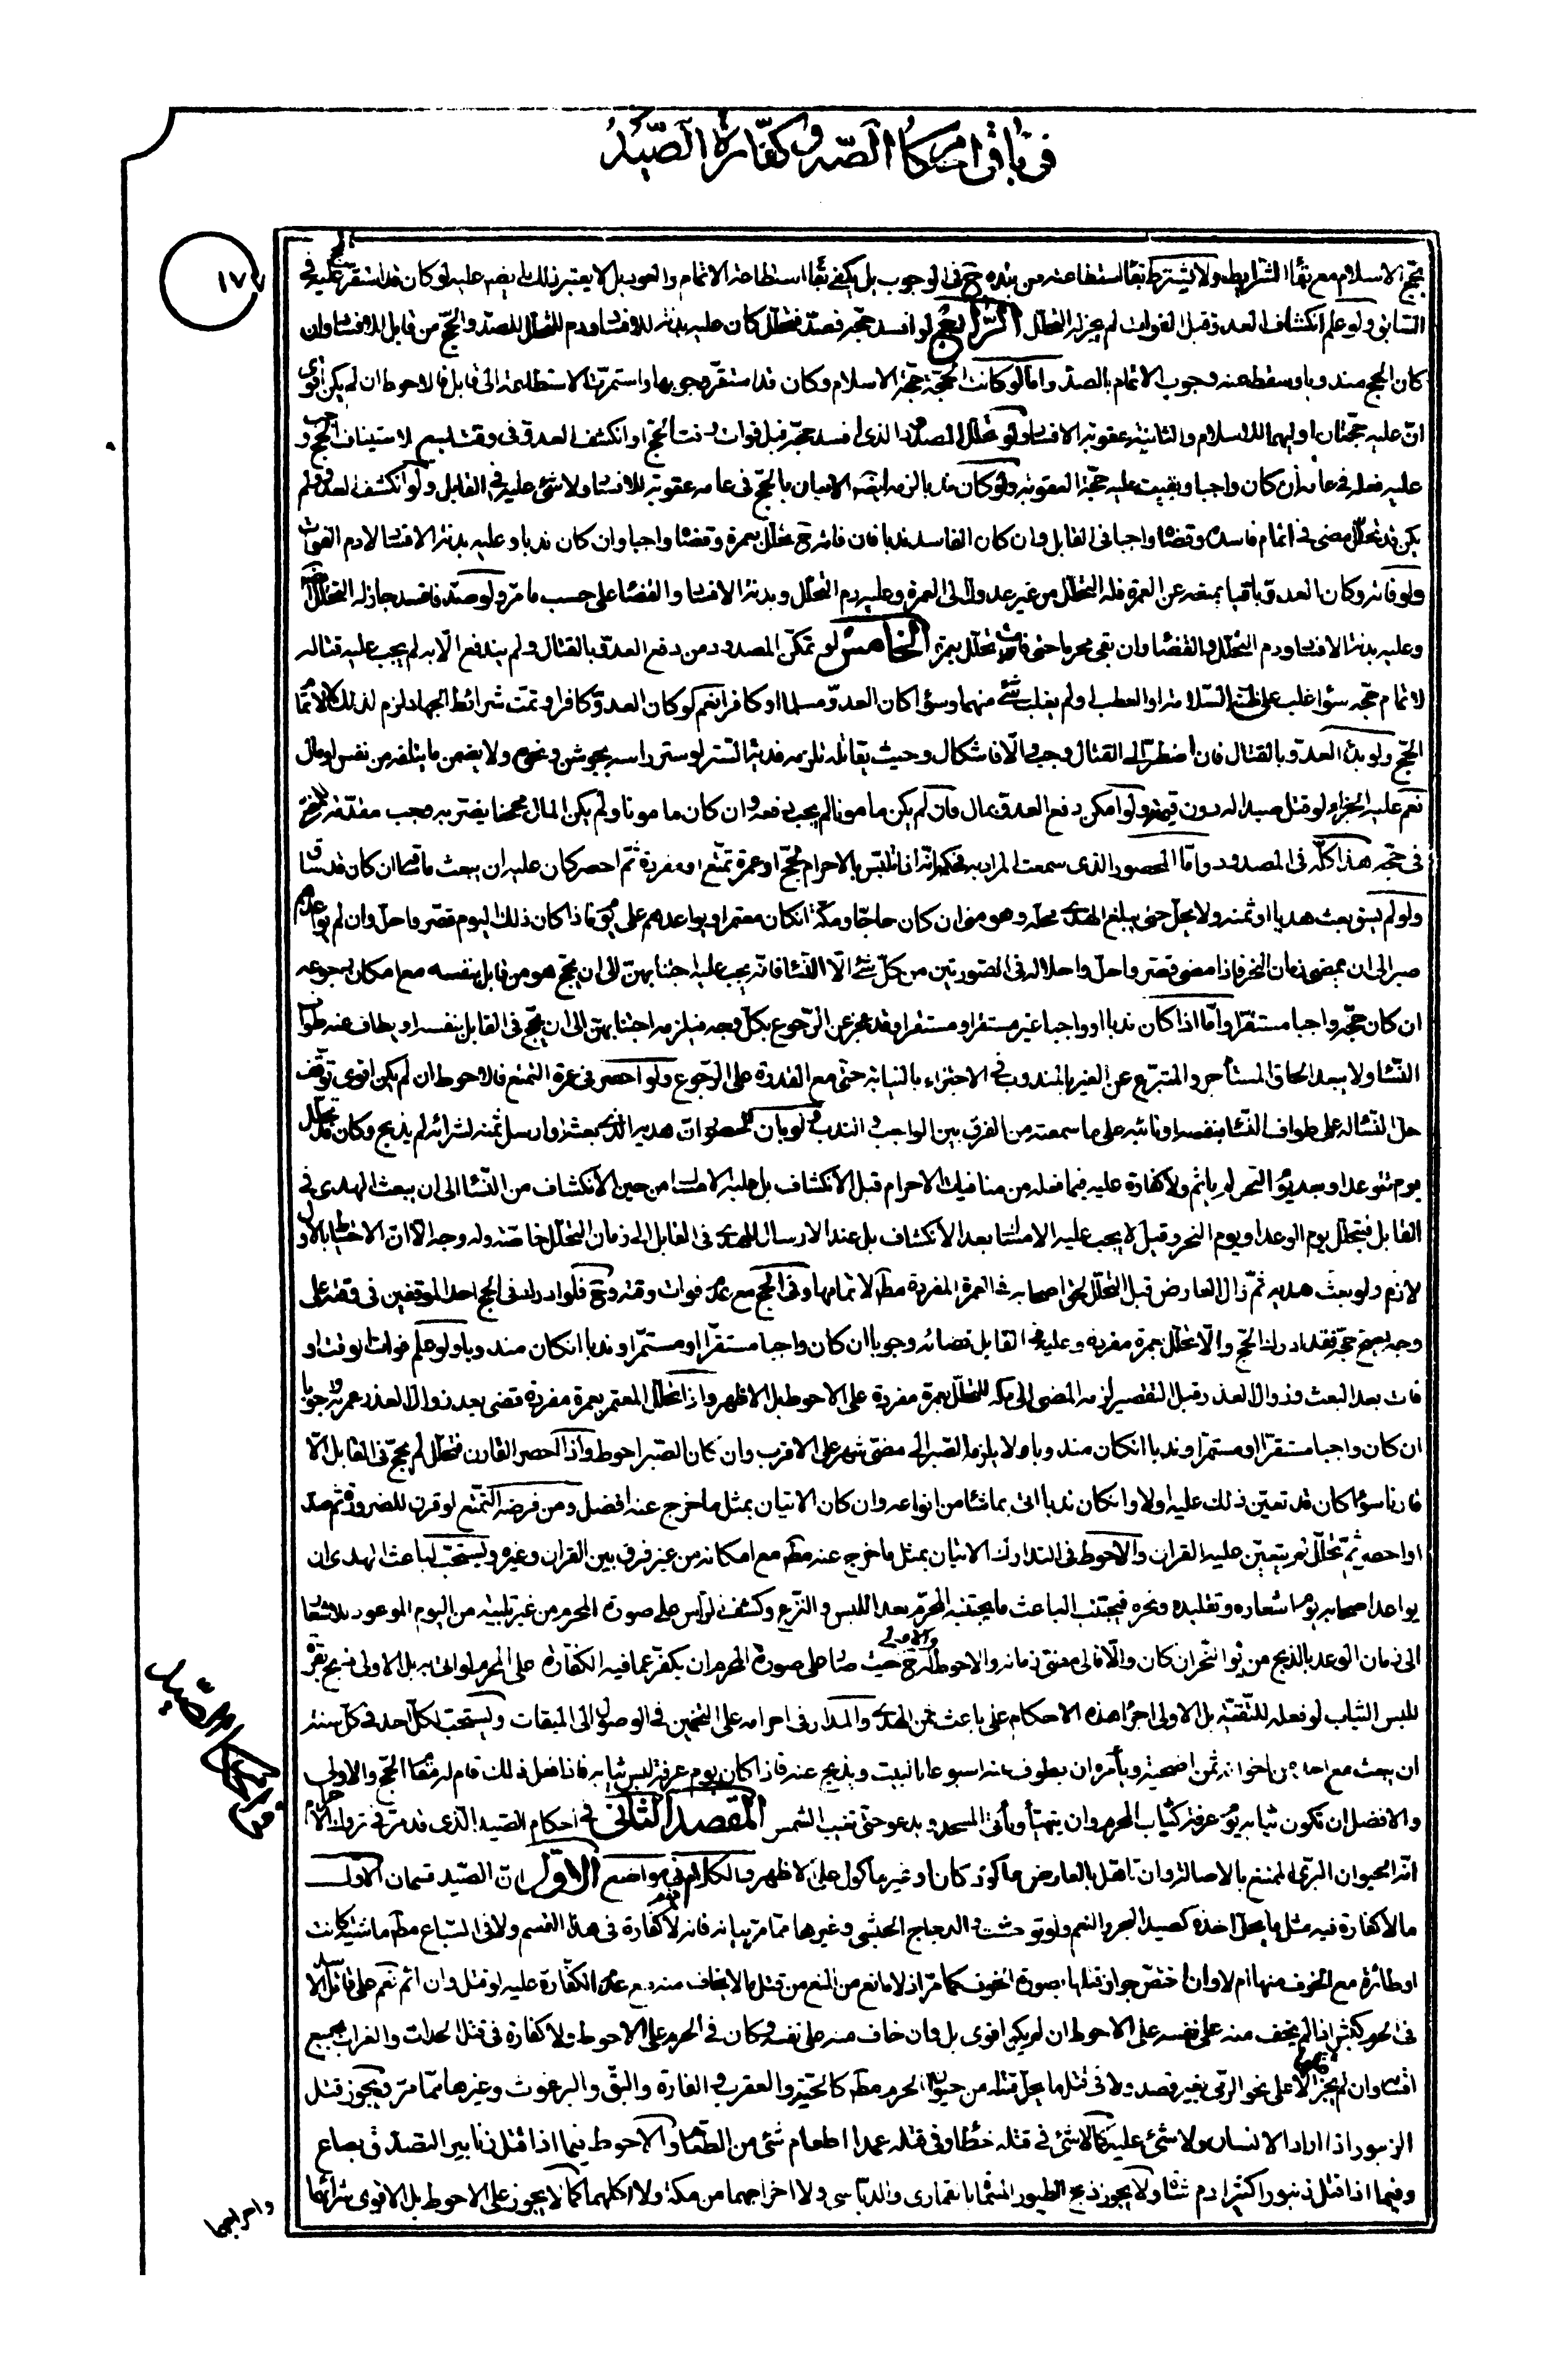 في باقي احكام الصد وكفارة الصيد
١٧٧
بحج الاسلام مع بقاء الشرايط ولا يشترط بقاء استطاعته من بلده ح في الوجوب بل يكفي بقاء استطاعة الاتمام والعود بل لا يعتبر ذلك ايضا عليه لو كان قد استقر عليه في
السابق ولو علم انكشاف العدو قبل الفوات لم يجز له التحلل الرابع لو افسد حجه فصد فتحلل كان عليه بدنة للافساد ودم للتحلل للصد والحج من قابل للافساد وان
كان الحج مندوبا وسقط عنه وجوب الاتمام بالصد واما لو كانت الحجة حجة الاسلام وكان قد استقر وجوبها واستمرت الاستطاعة الى قابل فالاحوط ان لم يكن اقوى
ان عليه حجتان اوليهما للاسلام والثانية عقوبة الافساد ولو تحلل المصدود الذي افسد حجه قبل فوات وقت الحج او انكشف العدو في وقت يسع لاستيناف الحج وجب
عليه فعله في عامه ان كان واجبا وبقيت عليه حجة العقوبة ولو كان ندبا لزمه ايضا الاتيان بالحج في عامه عقوبة للافساد ولا شئ عليه في القابل ولو انكشف العدو ولم
يكن قد تحلل مضى في اتمام فاسده وقضاه واجبا في القابل وان كان الفاسد ندبا فان فاته ح تحلل بعمرة وقضى واجبا وان كان ندبا وعليه بدنة الافساد لا دم الفوات
ولو فاته وكان العدو باقيا يمنعه عن العمرة فله التحلل من غير عدول الى العمرة وعليه دم التحلل وبدنة الافساد والقضاء على حسب ما مر ولو صد فافسد جاز له التحلل ايضا
وعليه بدنة الافساد ودم التحلل والقضاء وان بقي محرما حتى فات تحلل بعمرة الخامس لو تمكن المصدود من دفع العدو بالقتال ولم يندفع الا به لم يجب عليه قتاله
لاتمام حجه سواء غلب على ظنه السلامة او العطب او لم يغلب شئ منهما وسواء كان العدو مسلما او كافرا نعم لو كان العدو كافرا وتمت شرائط الجهاد لزم لذلك لا لاتمام
الحج ولو بدء العدو بالقتال فان اضطر الى القتال وجب والا فاشكال وحيث يقاتله تلزمه فدية الستر لو ستر راسه بجوشن ونحوه ولا يضمن ما يتلفه من نفس او مال
نعم عليه الجزاء لو قتل صيدا له دون قيمته ولو امكن دفع العدو بمال فان لم يكن مامونا لم يجب دفعه وان كان مامونا ولم يكن المال مجحفا يضر به وجب مقدمة
في حجه هذا كله في المصدود واما المحصور الذي سمعت المراد به فحكمه انه اذا تلبس بالاحرام لحج او عمرة تمتع او مفردة ثم احصر كان عليه ان يبعث ما ان كان قد ساق
ولو لم يسق بعث هديا او ثمنه ولا يحل حتى يبلغ الهدى محله وهو منى ان كان حاجا ومكة ان كان معتمرا ويواعدهم على يوم فاذا كان ذلك اليوم قصر واحل وان لم يواعدهم
صبر الى ان يمضي زمان النحر فاذا مضى قصر واحل واحلاله في الصورتين من كل شئ الا النساء فانه يجب عليه اجتنابهن الى ان يحج هو من قابل بنفسه مع امكان رجوعه
ان كان حجه واجبا مستقرا واما اذا كان ندبا او واجبا غير مستقر او مستقرا وقد عجز عن الرجوع بكل وجه فيلزمه اجتنابهن الى ان يحج في القابل بنفسه او يطاف عنه طواف
النساء ولا يبعد الحاق المستأجر والمتبرع عن الغير بالمندوب في الاجتزاء بالنيابة حتى مع القدرة على الرجوع ولو احصر في عمرة التمتع فالاحوط ان لم يكن اقوى توقف
حل النساء له على طواف النساء بنفسه او نائبه على ما سمعته من الفرق بين الواجب والندب ولو بان للمحصور ان هديه الذي بعثه او ارسل ثمنه لشرائه لم يذبح وكان قد تحلل
يوم تواعد او بعد يوم النحر لم ياثم ولا كفارة عليه فيما فعله من منافيات الاحرام قبل الانكشاف بل عليه الامساك من حين الانكشاف من النساء الى ان يبعث الهدى في
القابل فيتحلل يوم الوعد او يوم النحر وقيل لا يجب عليه الامساك بعد الانكشاف بل عند الارسال للهدى في القابل الى زمان التحلل خاصة وله وجه الا ان الاحتياط بالاول
لازم ولو بعث هديه ثم زال العارض قبل التحلل لحق اصحابه في العمرة المفردة مطلقا لاتمامها وفي الحج مع عدم فوات وقته وح فلو ادرك في الحج احد الموقفين في وقته على
وجه يصح حجه فقد ادرك الحج والا تحلل بعمرة مفردة وعليه في القابل قضائه وجوبا ان كان واجبا مستقرا او مستمرا وندبا ان كان مندوبا ولو علم فوات الوقت او
فات بعد البعث وزوال العذر قبل التقصير لزمه المضي الى مكة للتحلل بعمرة مفردة على الاحوط بل الاظهر واذا تحلل المعتمر بعمرة مفردة قضى بعد زوال العذر عمرته وجوبا
ان كان واجبا مستقرا او مستمرا وندبا ان كان مندوبا ولا يلزمه الصبر الى مضي شهر على الاقرب وان كان الصبر احوط واذا احصر القارن فتحلل لم يحج في القابل الا
قارنا سواء كان قد تعين ذلك عليه اولا وان كان ندبا اتى بما شاء من انواعه وان كان الاتيان بمثل ما خرج عنه افضل ومن فرضه التمتع لو قرن للضرورة ثم صد
او احصر ثم تحلل لم يتعين عليه القران والاحوط في التدارك الاتيان بمثل ما خرج عنه مطلقا مع امكانه من غير فرق بين القران وغيره ويستحب لباعث الهدى ان
يواعد اصحابه يوما اشعاره وتقليده ونحره فيجتنب الباعث ما يجتنبه المحرم بعد اللبس والنزع وكشف الراس على صورة المحرم من غير تلبية من اليوم الموعود للاشعار
الى زمان الوعد بالذبح من يوم النحر ان كان والا فالى زمانه والاحوط والاولى ح حيث صار على صورة المحرم ان يكفر عما فيه الكفارة على المحرم لو اتى به بل الاولى ذبح بقرة
للبس الثياب لو فعله للتقية بل الاولى اجراء هذه الاحكام على باعث ثمن الهدى والمدار في احرامه على التخمين في الوصول الى الميقات ويستحب لكل احد في كل سنة
ان يبعث مع احد من اخوانه ثمن اضحية ويأمره ان يطوف عنه اسبوعا بالبيت ويذبح عنه فاذا كان يوم عرفة لبس ثيابه فاذا فعل ذلك قام له مقام الحج والاولى
والافضل ان تكون ثيابه يوم عرفة كثياب المحرم وان يتهيأ ويأتى المسجد ويدعو حتى تغيب الشمس المقصد الثاني في احكام الصيد الذي قد مر في تروك الاحرام
انه الحيوان البري الممتنع بالاصالة وان تاهل بالعارض ماكول كان او غير ماكول على الاظهر والكلام فيه في مواضع الاول ان الصيد قسمان الاول
ما لا كفارة فيه مثل ما يحل اخذه كصيد البحر والنعم ولو توحشت والدجاج الحبشي وغيرها مما مر بيانه فانه لا كفارة في هذا القسم ولا في السباع مطلقا ماشية كانت
او طائرة مع الخوف منها ام لا وان اختص جواز قتلها بصورة الخوف كما مر اذ لا مانع من المنع من قتل ما لا يخاف منه مع عدم الكفارة عليه لو قتل وان اثم نعم على قاتل الاسد
في الحرم كبش اذا لم يخف منه على نفسه على الاحوط ان لم يكن اقوى بل وان خاف منه على نفسه وكان في الحرم على الاحوط ولا كفارة في قتل الحداة والغراب بجميع
اقسامه وان لم يجز الا على نحو الرمي بغير قصد ولا في قتل ما يحل قتله من حيوان الحرم مطلقا كالحية والعقرب والفارة والبق والبرغوث وغيرها مما مر ويجوز قتل
الزنبور اذا اراد الانسان ولا شئ عليه كما لا شئ في قتله خطأ وفي قتله عمدا اطعام شئ من الطعام والاحوط فيما اذا قتل زنابير التصدق بصاع
وفيما اذا قتل زنبورا كثيرا دم شاة ولا يجوز ذبح الطيور المسماة بالقماري والدباسي ولا اخراجهما من مكة ولا اكلهما كما لا يجوز على الاحوط بل الاقوى شرائهما
في احكام الصيد
واخراجهما